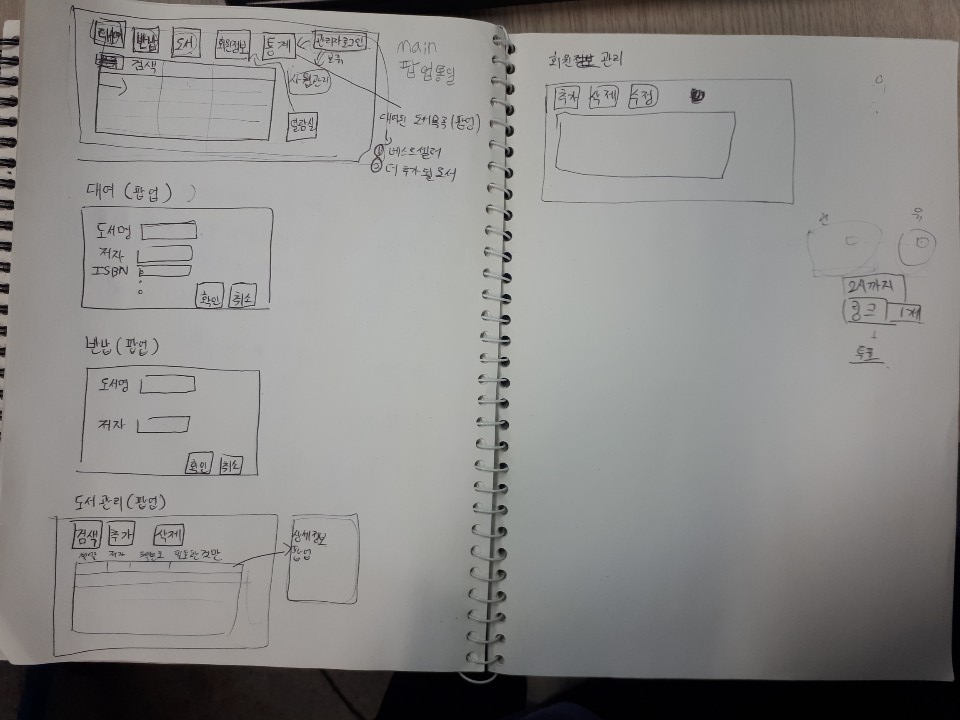 대여 반납 도서 회원정보 통계 관리자로그인
검색
main
팝업통일
열람실
대여된 도서목록(팝업)
① 베스트셀러
② 더 추가될 도서
대여 (팝업)
도서명
저자
ISBN
확인 취소
반납 (팝업)
도서명
저자
확인 취소
도서관리(팝업)
검색 추가 삭제
저자 필요한 것만
상세정보
팝업
회원정보 관리
추가 삭제 수정
2시까지
링크 1개